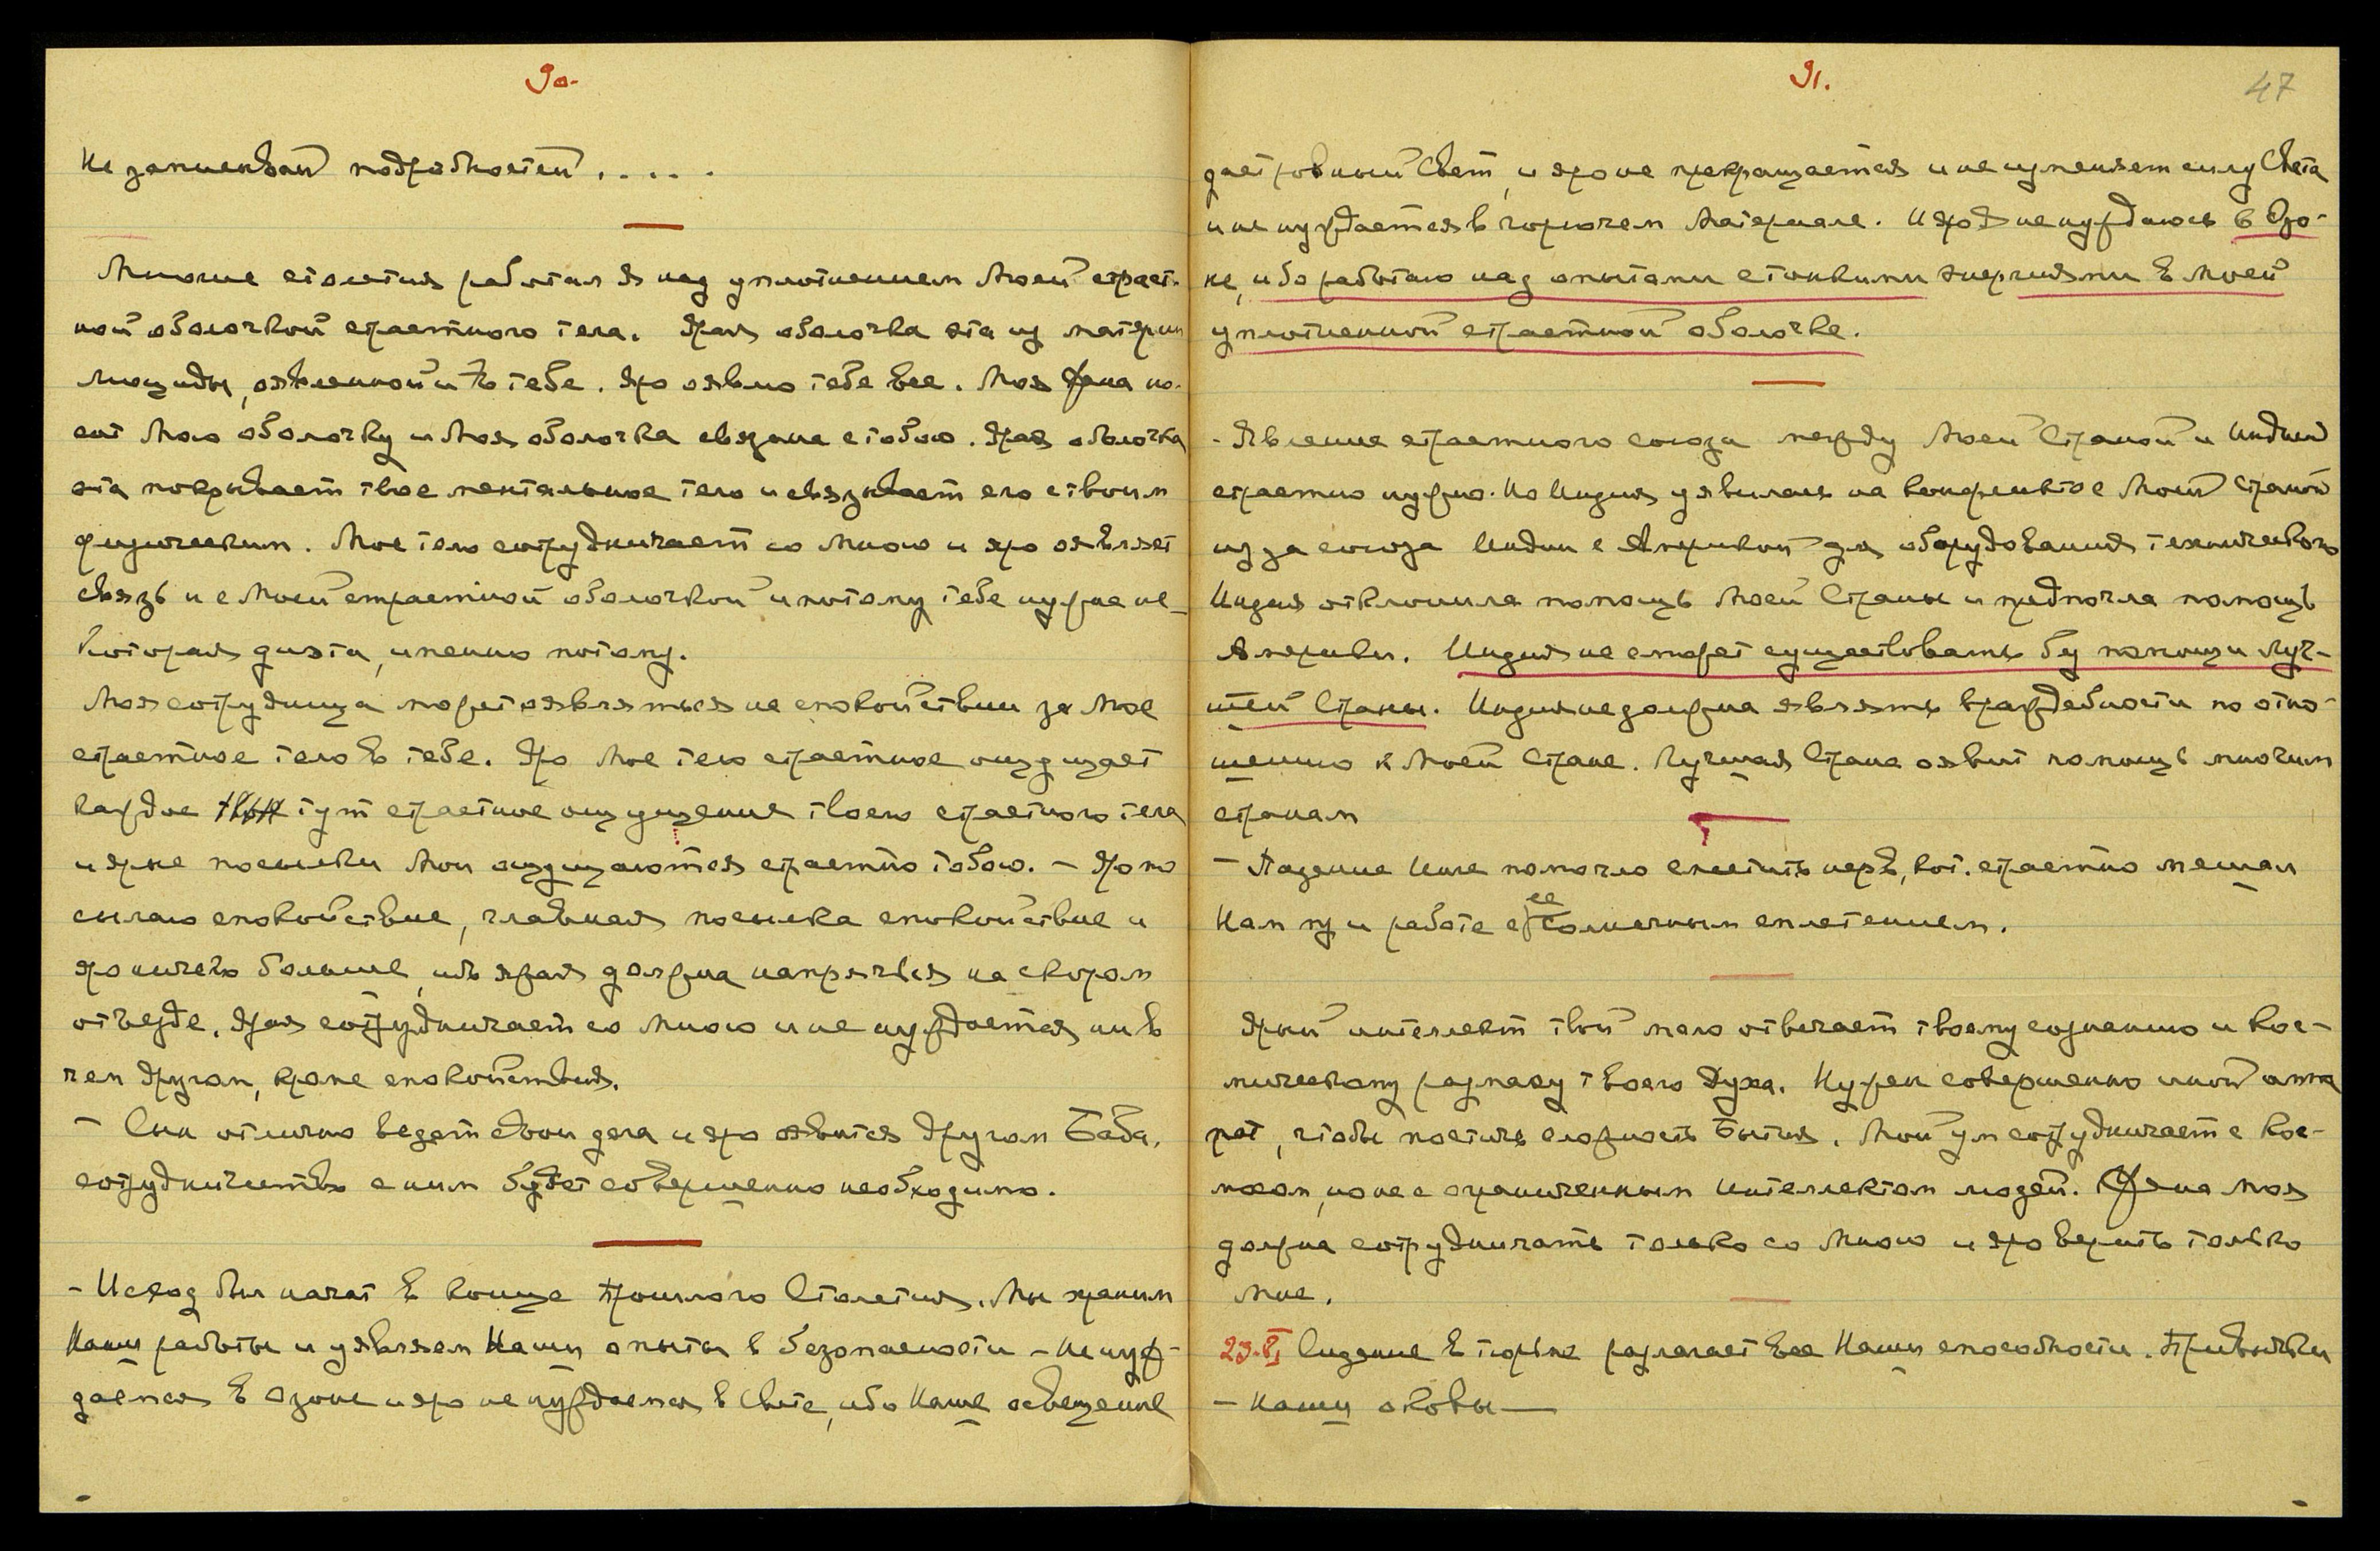 90.
Не записывай подробностей . . . . .
Многие столетия работал Я над уплотнением Моей страст-
ной оболочкой страстного тела. Ярая оболочка эта из материи
люциды, оявленной и в тебе. Яро оявлю тебе все. Моя Жена но-
сит Мою оболочку и Моя оболочка связана с тобою. Ярая оболочка
эта покрывает твое ментальное тело и связывает его с твоим
физическим. Мое тело сотрудничает со Мною и яро оявляет
связь и с Моей страстной оболочкой и потому тебе нужна не-
которая диэта, именно потому.
Моя сотрудница может оявляться на спокойствии за Мое
страстное тело в тебе. Яро Мое тело страстное ощущает
каждое тут страстное ощущение твоего страстного тела
и ярые посылки Мои ощущаются страстно тобою. – Яро по
сылаю спокойствие, главная посылка спокойствие и
яро ничего больше, ибо ярая должна напрячься на скором
отъезде. Ярая сотрудничает со Мною и не нуждается ни в
чем другом, кроме спокойствия.
– Сын отлично ведет свои дела и яро оявится другом Баба,
сотрудничество с ним будет совершенно необходимо.
– Исход был начат в конце прошлого Столетия. Мы храним
Наши работы и уявляем Наши опыты в безопасности – Не нуж-
даемся в Озоне и яро не нуждаемся в Свете, ибо Наше освещение
91.
47
дает ровный Свет, и яро не прекращается и не изменяет силу Света
и не нуждается в горючем Материале. И яро Я не нуждаюсь в Озо-
не, ибо работаю над опытами с тонкими энергиями в Моей
уплотненной страстной оболочке.
– Явление страстного союза между Моей Страной и Индией
страстно нужно. Но Индия уявилась на конфликте с Моей Страной
из за союза Индии с Америкой для оборудования технического
Индия отклонила помощь Моей Страны и предпочла помощь
Америки. Индия не сможет существовать без помощи Луч-
шей Страны. Индия не должна являть враждебности по отно-
шению к Моей Стране. Лучшая Страна оявит помощь многим
странам
– Падение Иные помогло сместить нерв, кот. страстно мешал
Нам при работе с ее Солнечным сплетением.
Ярый интеллект твой мало отвечает твоему сознанию и кос-
мическому размаху твоего Духа. Нужен совершенно иной аппа
рат, чтобы постичь сложность Бытия. Мой ум сотрудничает с Кос-
мосом, но не с ограниченным Интеллектом людей. Жена Моя
должна сотрудничать только со Мною и яро верить только
Мне.
23.VI Сидение в тюрьме разлагает все Наши способности. Привычки
– Наши оковы —